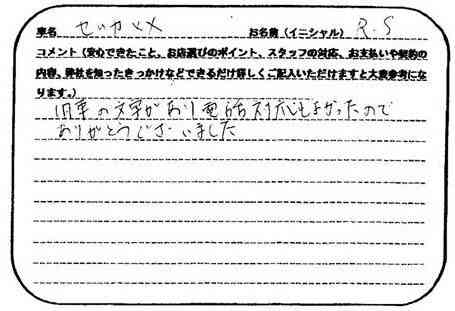 車名 セリカXX お名前（イニシャル） R.S
コメント（安心できたこと、お店選びのポイント、スタッフの対応、お支払いや契約の
内容、弊社を知ったきっかけなどできるだけ詳しくご記入いただけますと大変参考にな
ります。）
旧車の文字があり電話対応もよかったので
ありがとうございました